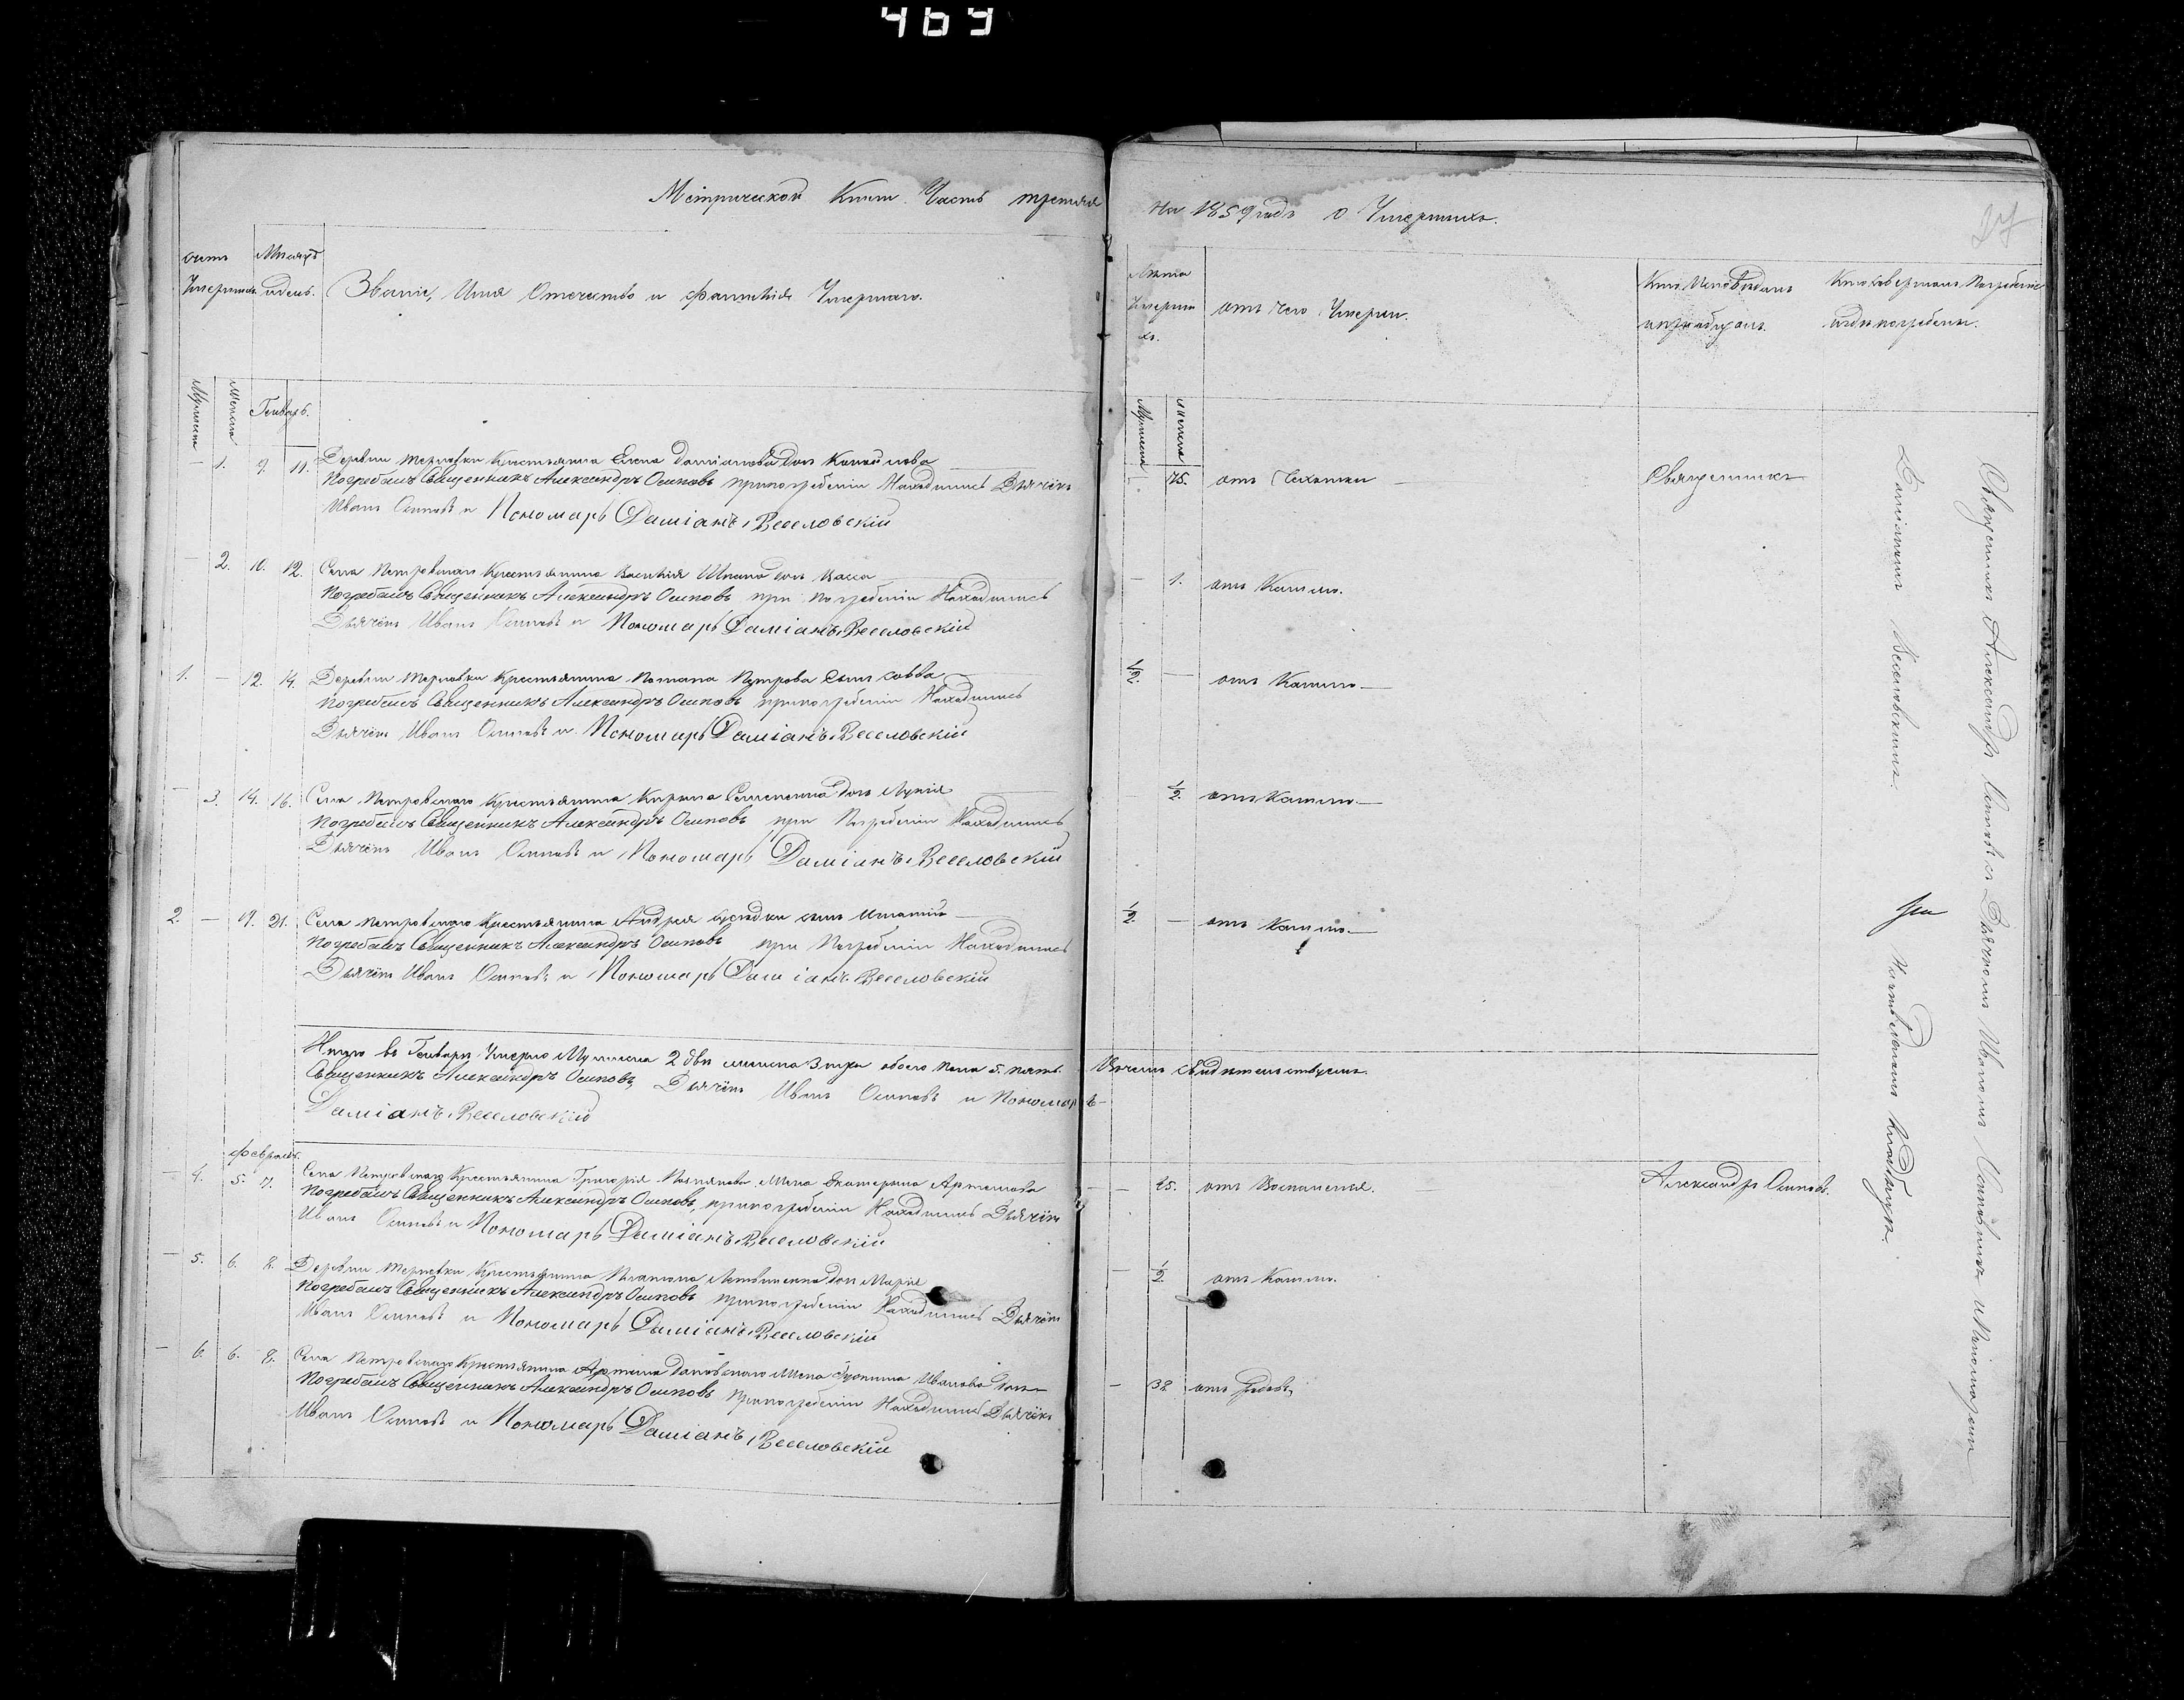 469
Метрической Книги Часть третья на 1859 годъ о Умершихъ.
27
счетъ Умершихъ.
Мѣсяцъ и день.
Званіе, Имя Отечество и Фамилія Умершаго.
Лѣта Умершихъ.
отъ чего Умерли.
Кто Исповѣдалъ и пріобщалъ.
Кто совершалъ Погребеніе и гдѣ погребены.
Мужеска
Женска
Генварь.
Мужеска
Женска
— 1. 9. 11. Деревни Терновки Крестьянина Елена Даміанова дочь
Погребалъ Священникъ Александръ Осиповъ при погребеніи Находились Дьячёкъ
Иванъ Осиповъ и Пономарь Даміанъ Веселовскій
— 75. отъ Чахотки — Священникъ
— 2. 10. 12. Села Петровскаго Крестьянина Василія дочь Васса
Погребалъ Священникъ Александръ Осиповъ при погребеніи Находились
Дьячёкъ Иванъ Осиповъ и Пономарь Даміанъ Веселовскій
— 1. отъ Кашлю.
1. — 12. 14. Деревни Терновки Крестьянина Потапа Петрова сынъ Савва
Погребалъ Священникъ Александръ Осиповъ при погребеніи Находились
Дьячёкъ Иванъ Осиповъ и Пономарь Даміанъ Веселовскій
1/2. — отъ Кашлю —
— 3. 14. 16. Села Петровскаго Крестьянина Кирила дочь Лукія
Погребалъ Священникъ Александръ Осиповъ при Погребеніи Находились
Дьячёкъ Иванъ Осиповъ и Пономарь Даміанъ Веселовскій
1/2. отъ Кашлю. —
2. — 19. 21. Села Петровскаго Крестьянина Андрея сынъ Игнатій
Погребалъ Священникъ Александръ Осиповъ при Погребеніи Находились
Дьячёкъ Иванъ Осиповъ и Пономарь Даміанъ Веселовскій
1/2. — отъ Кашлю. —
Итого въ Генварѣ Умерло Мужеска 2 два женска 3 три обоего пола 5. пять. Въ чемъ свидѣтельствуемъ.
Священникъ Александръ Осиповъ, Дьячёкъ Иванъ Осиповъ и Пономарь
Даміанъ Веселовскій
Февраль.
— 4. 5. 7. Села Петровскаго Крестьянина Григорія жена Екатерина Артемова
Погребалъ Священникъ Александръ Осиповъ, при погребеніи Находились Дьячёкъ
Иванъ Осиповъ и Пономарь Даміанъ Веселовскій
— 25. отъ Воспаленія. — Александръ Осиповъ.
— 5. 6. 8. Деревни Терновки Крестьянина Платона Литвиненка дочь Марія
Погребалъ Священникъ Александръ Осиповъ при погребеніи Находились Дьячёкъ
Иванъ Осиповъ и Пономарь Даміанъ Веселовскій
— 1/2. отъ Кашлю.
— 6. 6. 8. Села Петровскаго Крестьянина жена Иванова дочь
Погребалъ Священникъ Александръ Осиповъ при погребеніи Находились Дьячёкъ
Иванъ Осиповъ и Пономарь Даміанъ Веселовскій
— 32 отъ Родовъ,
Священникъ Александръ Осиповъ съ Дьячкомъ Иваномъ Осиповымъ и Пономаремъ
Даміаномъ Веселовскимъ. На Кладбищѣ.